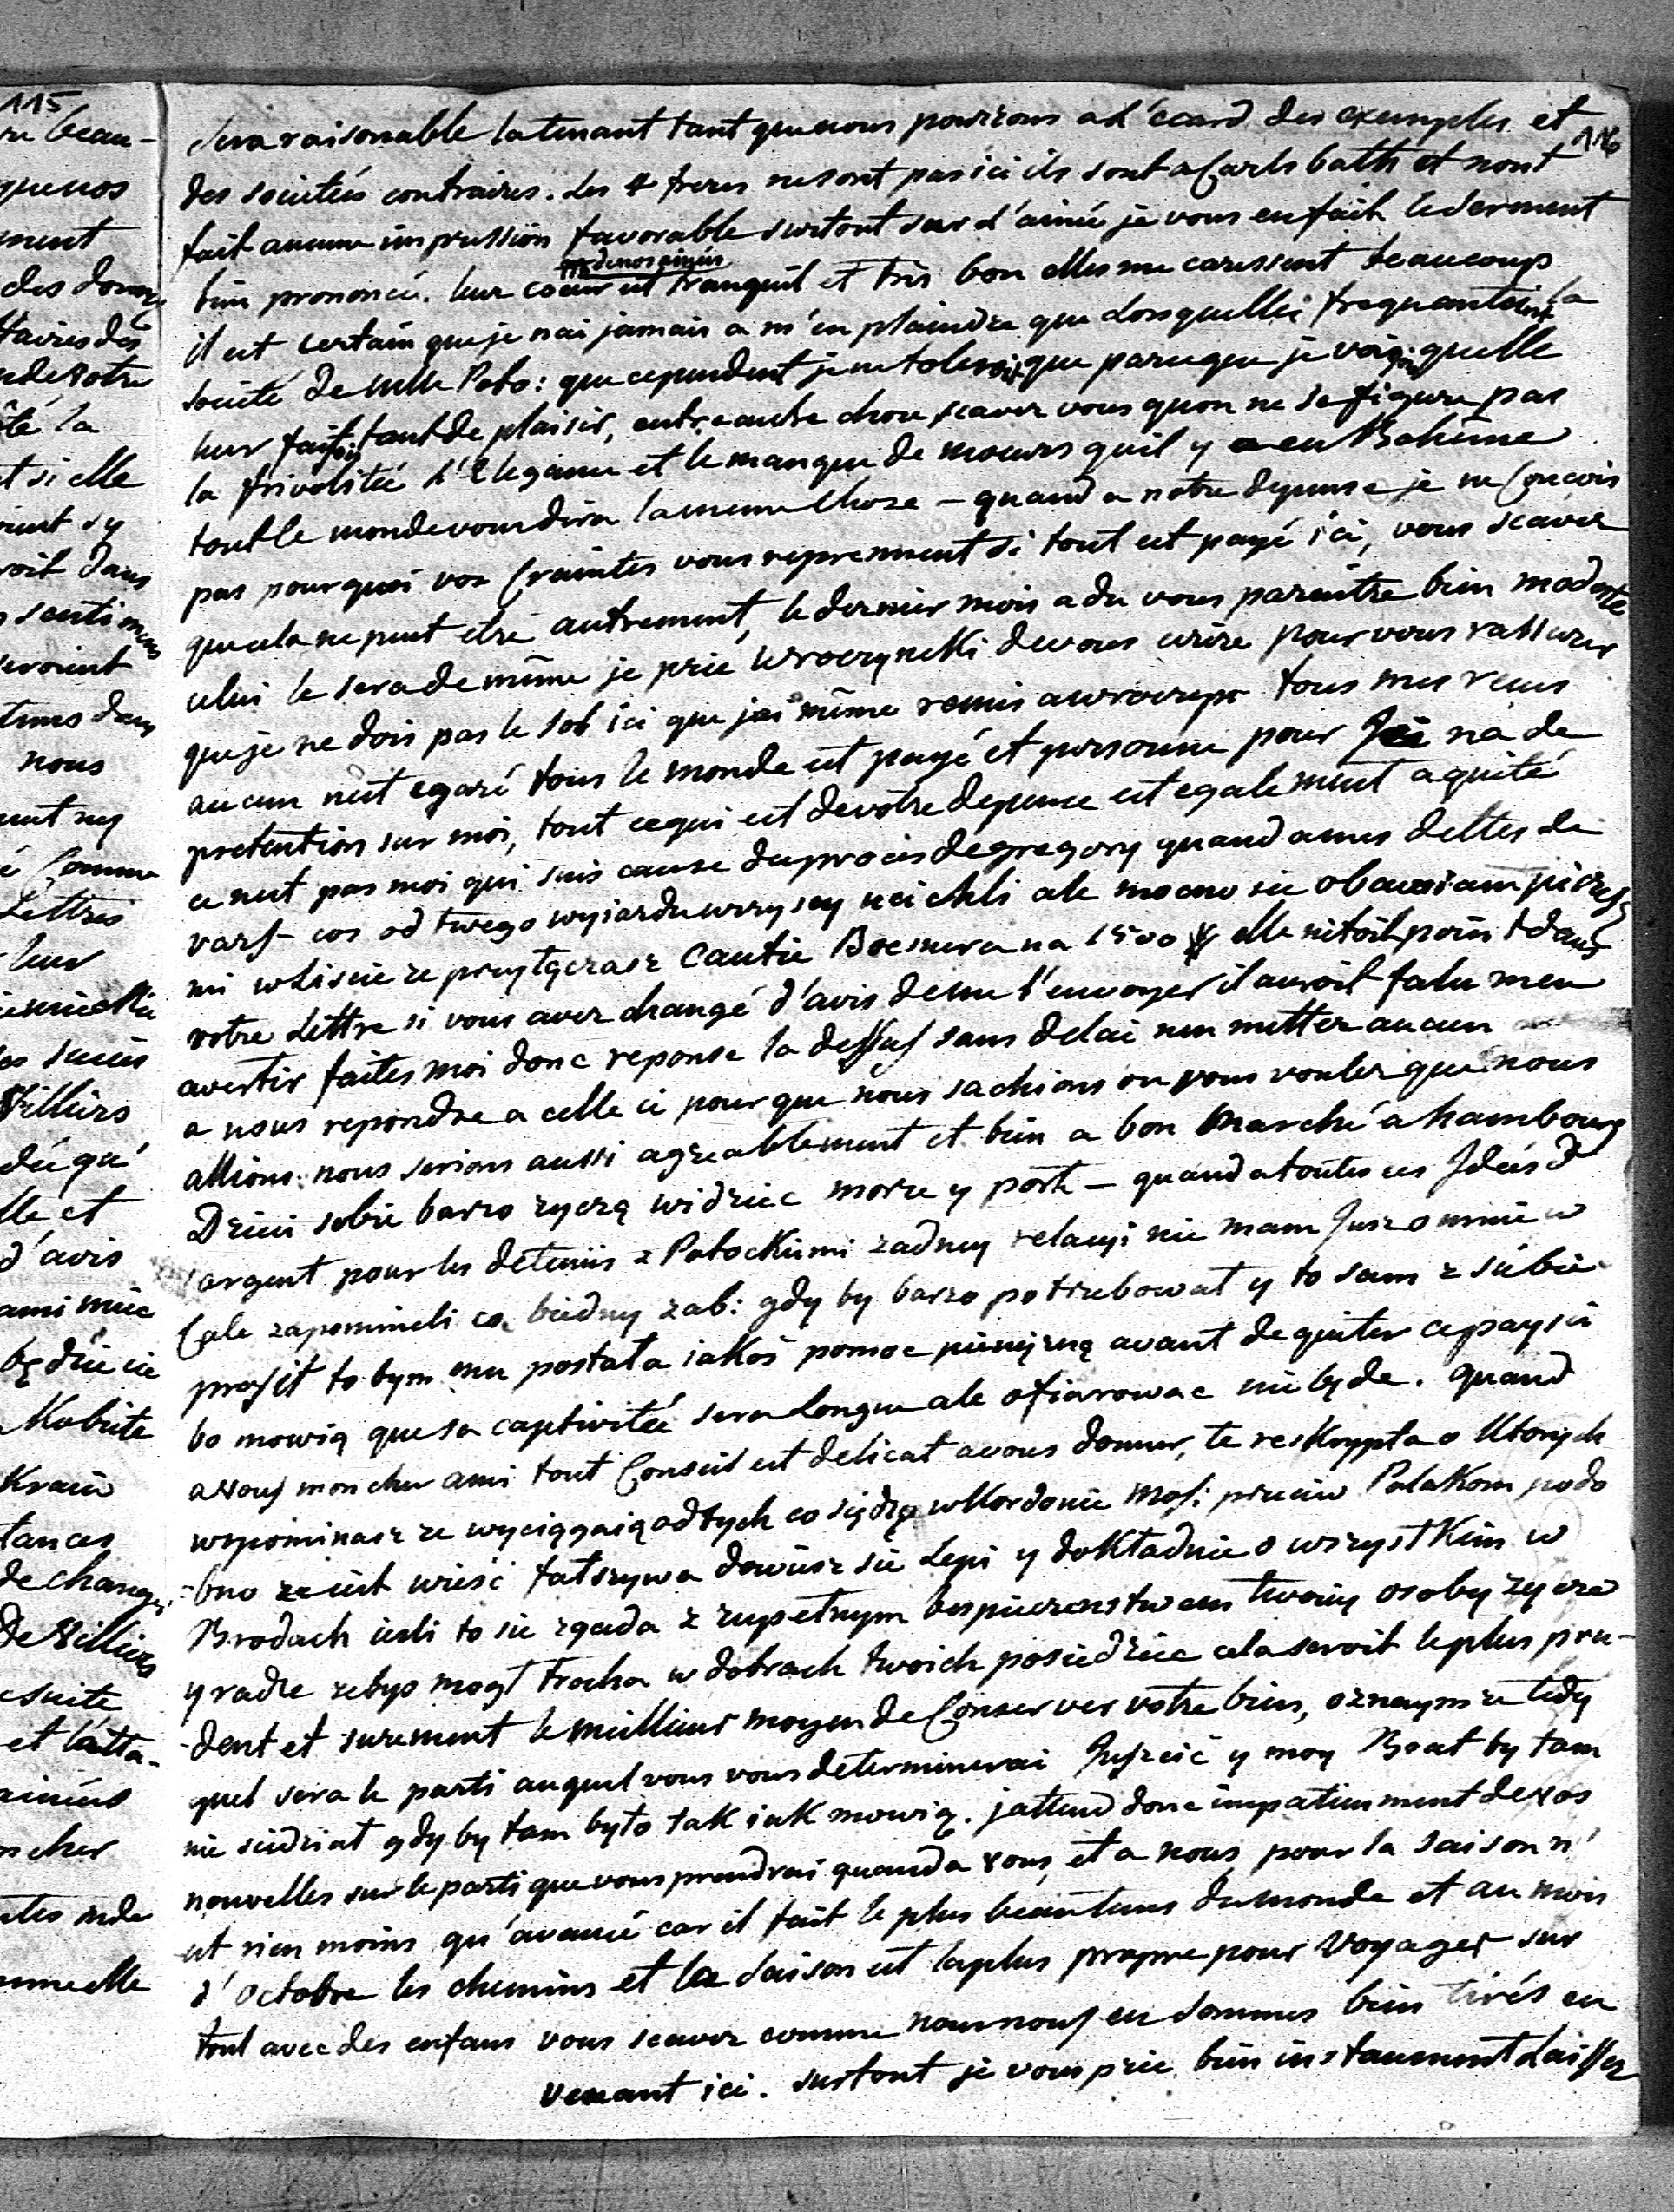 116
sera raisonable la tenant tant que nous pourrons a l'écard des exemples et
des societées contraires. Les 4 freres ne sont pas ici ils sont a Carls bath et nont
fait aucune impression favorable surtout sur l'ainée je vous en fait le serment
bien prononcé. leur coeur est tranquil et tres bon elles me caressent beaucoup
de nos ainées
il est certain que je nai jamais a m'en plaindre que lors quelles frequantoient la
societé de Mlle Poto: que cependent je ne tolerois que parceque je voi quelle
leur fai tant de plaisir, entre autre chose scavez vous quon ne se figure pas
la frivolitée l'Elegance et le manque de moeurs quil y a en Bohême
tout le monde vous dira la meme Chose — quand a notre depense je ne Conçois
pas pourquoi vos Craintes vous reprennent si tout est payé ici, vous scavez
que cela ne peut etre autrement, le dernier mois a du vous paraitre bien modeste
celui le sera de même je prié Wroczynski de vous ecrire pour vous rassurer
que je ne dois pas le sol ici que jai même remis a tous mes recus
aucun nest egaré tous le monde est payé et personne pour na de
pretention sur moi, tout ce qui est de votre depense est egalement aquité
ce nest pas moi qui suis cause du procés de gregory quand a mes dettes de
vars- cos od twego wyiazdu wszyscy ucichli ale mocno sie obawiam piszesz
mi w Liscie ze przyłączasz Cautie Boesnera na 1500 # elle nétoit point dans
votre Lettre si vous avez changé d'avis de me l'envoyer il auroit falu men
avertir faites moi donc reponse la dessus sans delai nen mettez aucun
a nous repondre a celle ci pour que nous sachions ou vous voulez que nous
allions. nous serions aussi agreablement et bien a bon marché a hambourg
Dzieci sobie barzo zyczą widziec morze y port — quand a toutes ces Idées d
argent pour les detenus z Potockiemi zadney relacyi nie mam Jusz o mnie w
Cale zapomnieli co biedny zab: gdy by barzo potrzebował y to sam z siebie
prosił to bym mu posłała iakoś pomoc pieniężną avant de quiter ce pays ci
bo mowią que sa captivitée sera longue ale ofiarowac nie będe. quand
a vous mon cher ami tout Conseil est delicat a vous donner, te reskrypta o Ktorych
wspominasz ze wyciągaią od tych co siędzą w Kordonie Mos: przeciw Polakom podo
-bno ze iest wieść fałszywa dowiesz sie Lepi y dokładnie o wszystkim w
Brodach iesli to sie zgada z zupełnym bespieczenstwem twoiey osoby zycze
y radze zebys mogł trocha w dobrach twoich posiedziec cela seroit le plus pru-
-dent et surement le meilleur moyen de Conserver votre bien, oznaym ze tedy
quel sera le parti auquel vous vous determinerai y moy Brat by tam
nie siedział gdy by tam było tak iak mowią. j'attend donc impatiemment de vos
nouvelles sur le parti que vous prendrai quand a vous, et a nous pour la saison n'
est rien moins qu'avancé car il fait le plus beau tems du monde et au mois
d'octobre les chemins et la saison est la plus propre pour voyager sur
tout avec des enfans vous scavez comme nous nous en sommes bien tirés en
venant ici. surtout je vous prie bien instamment Laissez